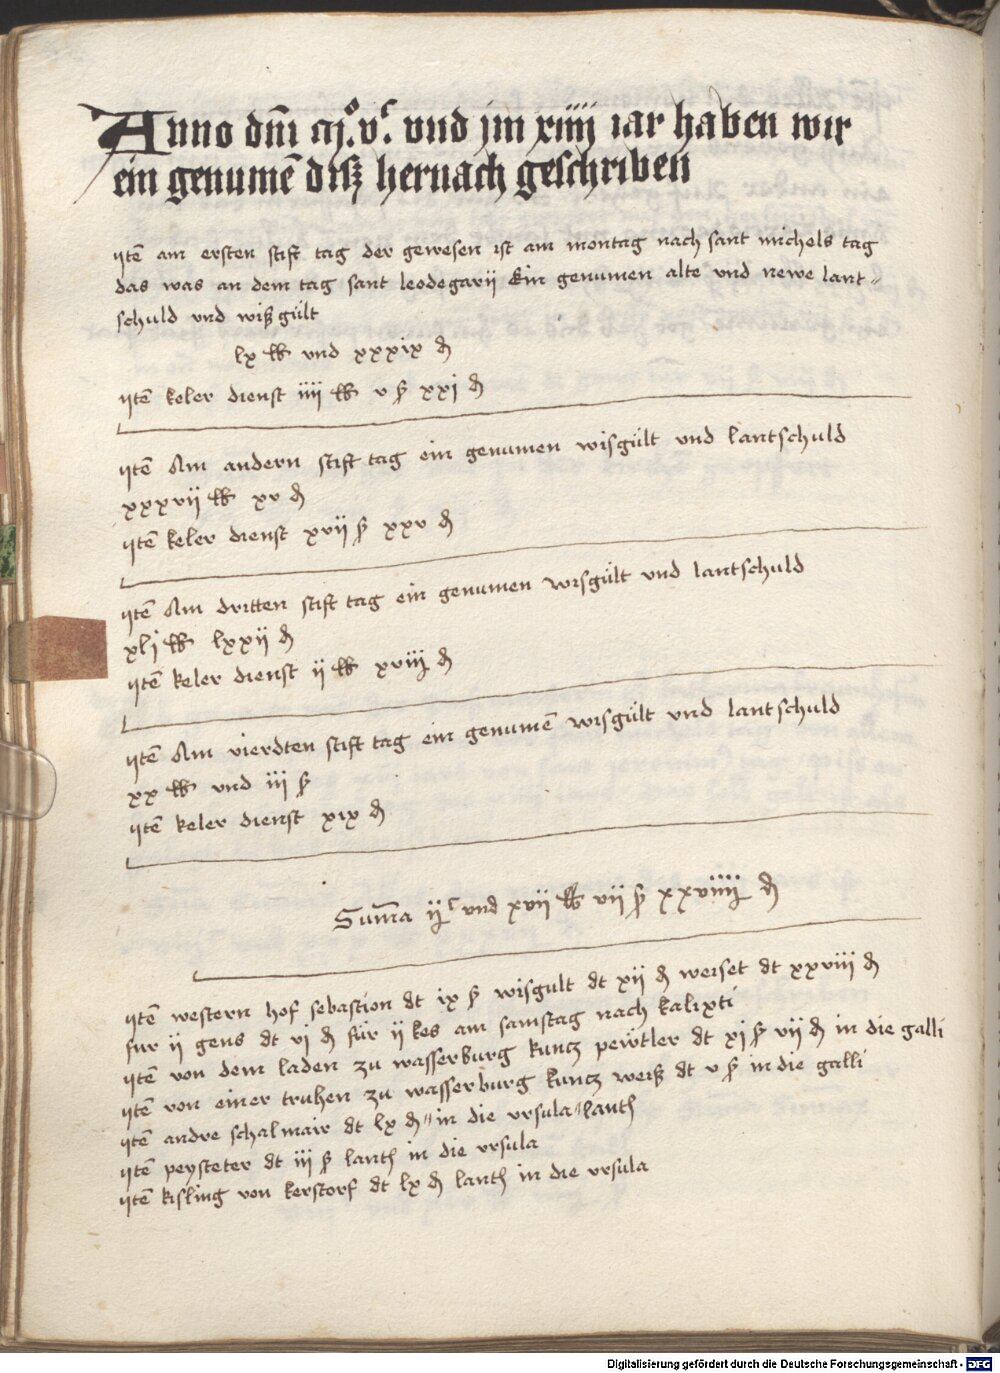 Anno dm̄ mj.° vͨ. vnd jm xiiij iar haben wir
ein genumē diß hernach geschriben
Itē am ersten stift tag der gewesen ist am montag nach sant michels tag
das was an dem tag sant leodegarij Ein genumen alte vnd newe lant=
schuld vnd wißgült
lx ℔ vnd xxxix ₰
Itē keler dienst iiij ℔ v ß xxj ₰
Itē Am andern stift tag ein genumen wisgült vnd lantschuld
xxxvij ℔ xv ₰
Itē keler dienst xvij ß xxv ₰
Itē Am dritten stift tag ein genumen wisgült vnd lantschuld
xlj ℔ lxxij ₰
Itē keler dienst ij ℔ xviij ₰
Itē Am vierdten stift tag ein genumē wisgült vnd lantschuld
xx ℔ vnd iij ß
Itē keler dienst xix ₰
Sum̄a ijͨ vnd xvij ℔ vij ß xxviiij ₰
Itē western hof sebastion dt ix ß wisgult dt xij ₰ werset dt xxviij ₰
fur ij gens dt vj ₰ für ij kes am samstag nach kalixti
Itē von dem laden zu wasserburg kuncz pewtler dt xj ß vij ₰ in die galli
Itē von einer truhen zu wasserburg kuncz weiß dt v ß in die galli
Itē andre schalmair dt lx ₰ // in die vrsula // lanth
Itē peysteter dt iij ß lanth in die vrsula
Itē kisling von kerstorf dt lx ₰ lanth in die vrsula
Digitalisierung gefördert durch die Deutsche Forschungsgemeinschaft - DFG